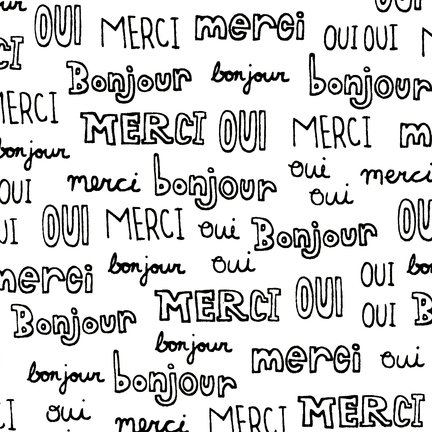 OUI MERCI merci OUI OUI
Bonjour bonjour bonjour
MERCI MERCI OUI MERCI
bonjour merci bonjour oui merci
OUI oui
OUI MERCI oui Bonjour
merci bonjour oui OUI
MERCI OUI OUI
Bonjour
bonjour merci oui
bonjour bonjour
oui merci MERCI MERCI